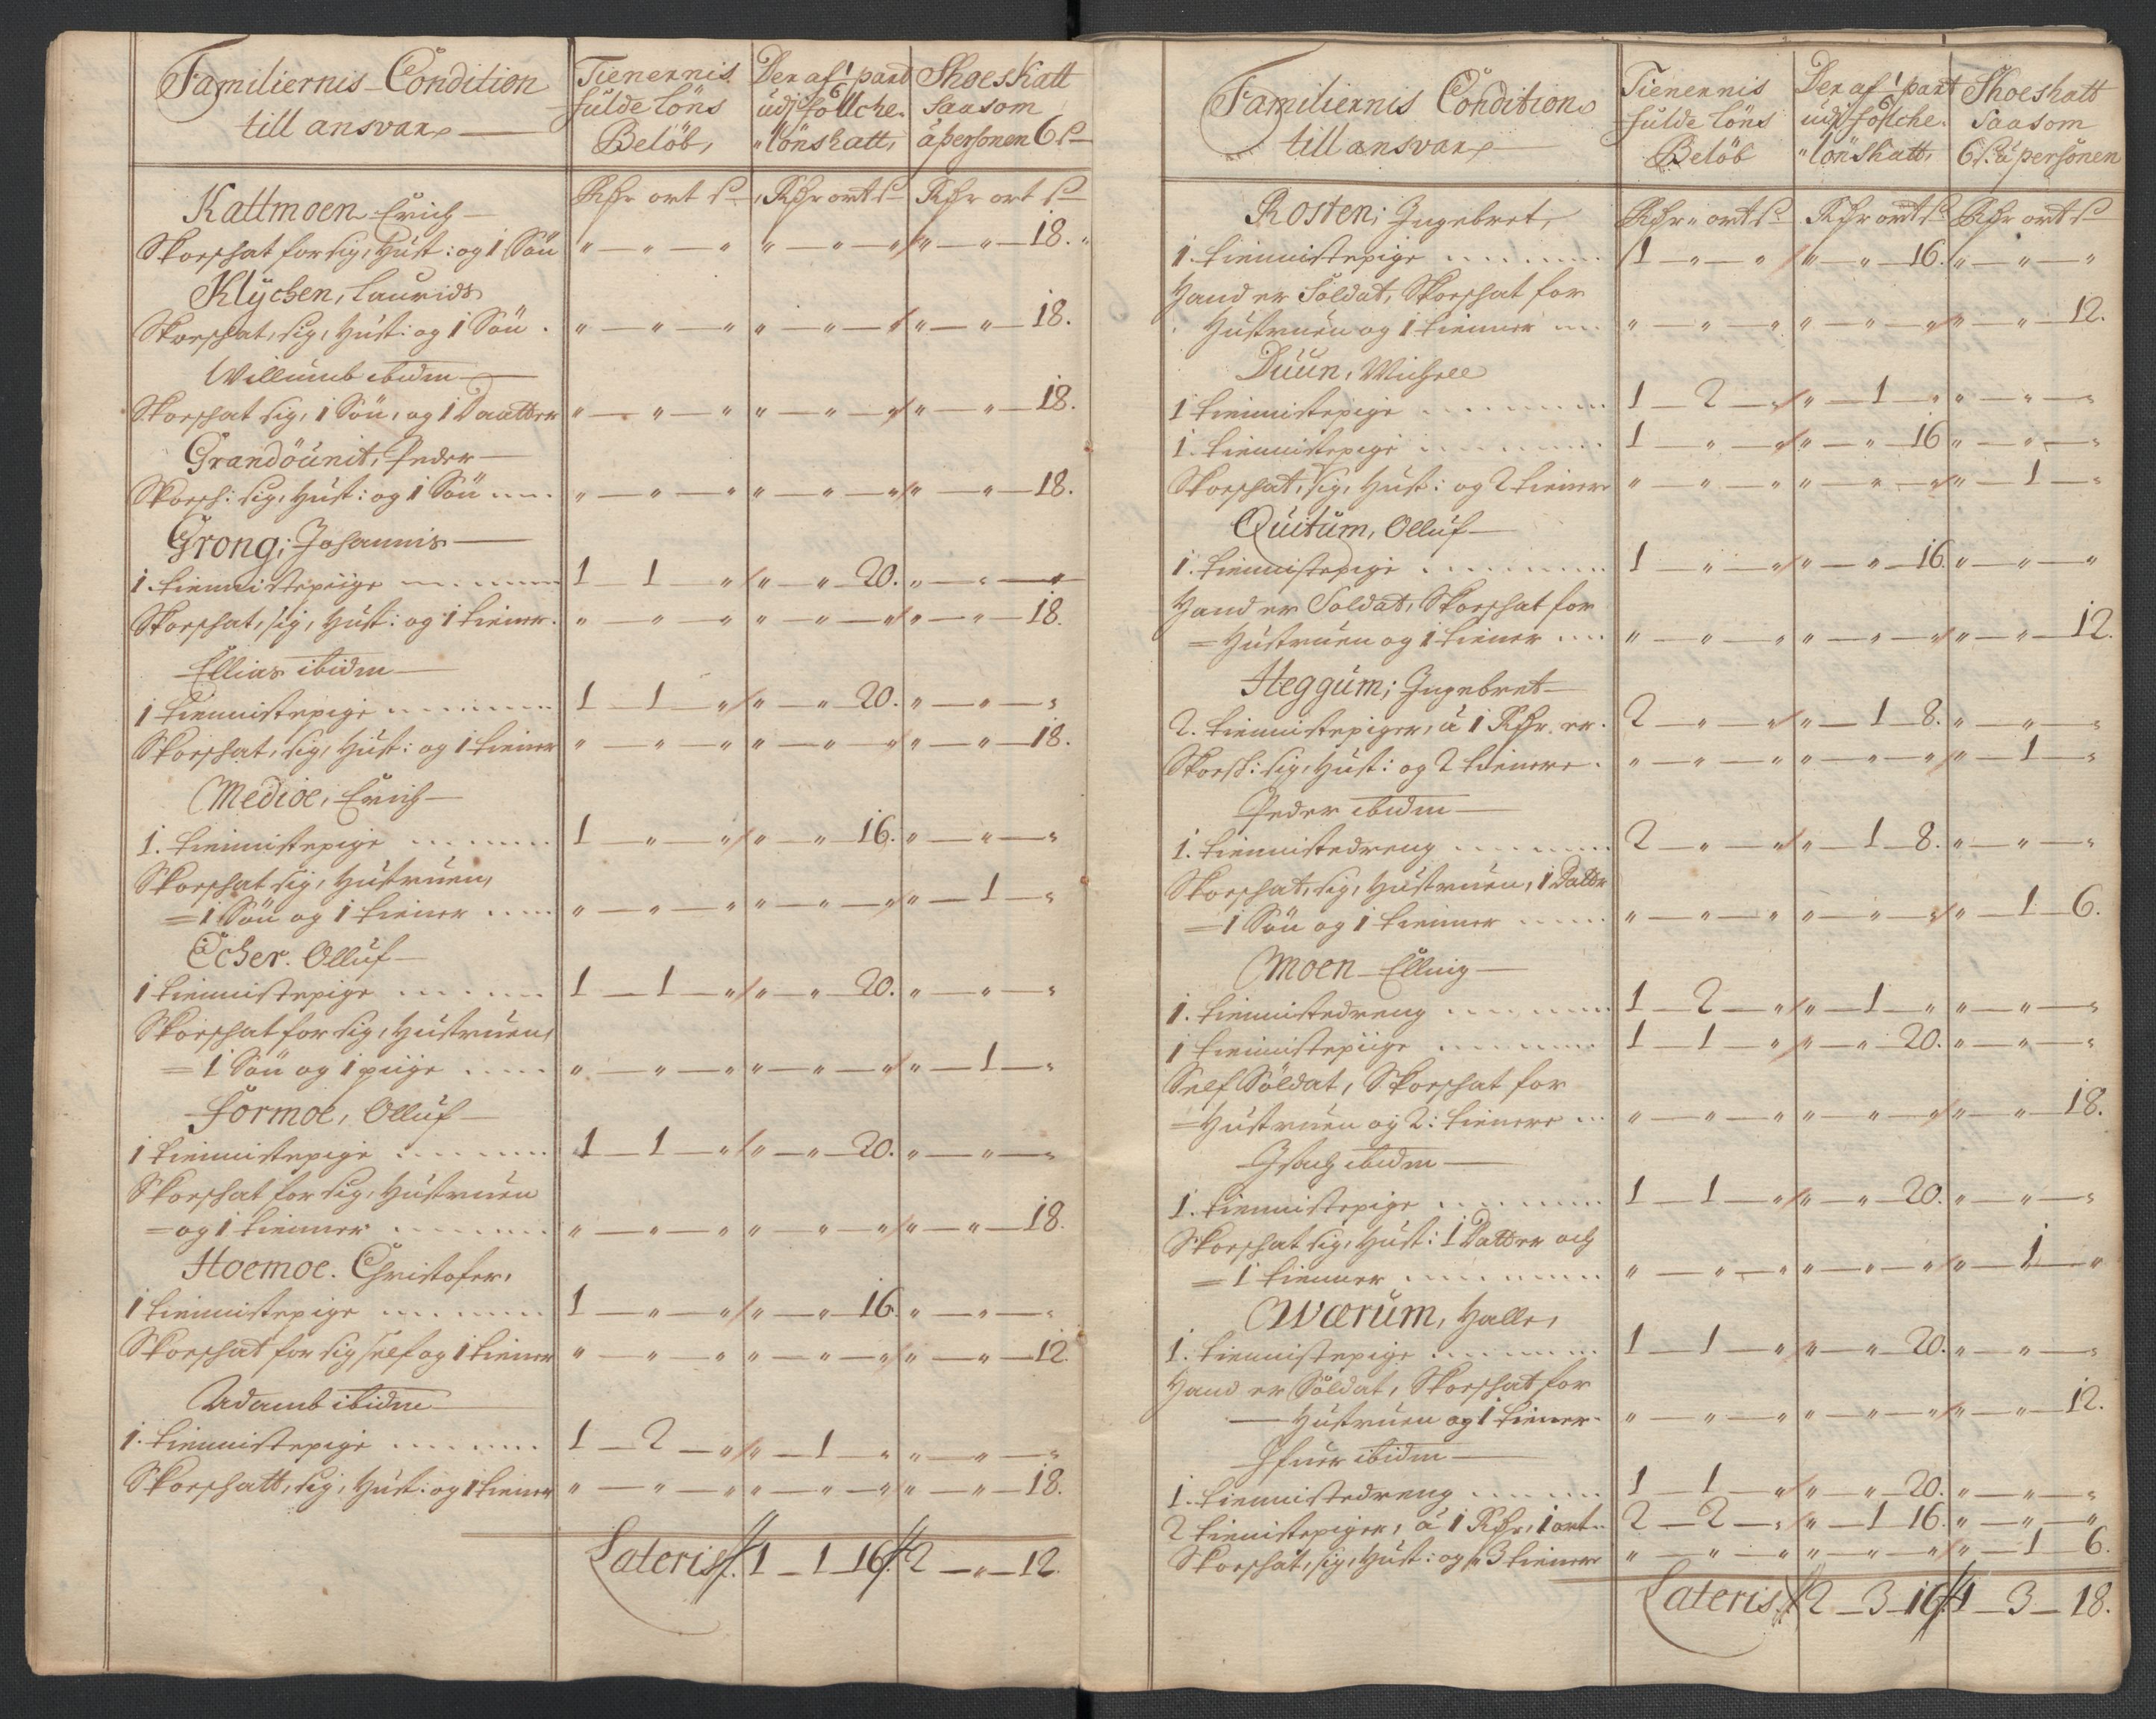 Familiernis Condition
till ansvar
Tienernis
fulde löns
Belöb,
Der af 1/6 part
udj follche-
"lönskatt,
Skoeskatt
saasom
à personen 6 s
Rdr ort s Rdr ort s Rdr ort s
Kattmoen Erich
Skoeskat for sig, Hust: og 1 Sön " — " — " " — " — " " — " — 18.
Klÿchen, Laurids
Skoeskat, sig, Hust: og 1 Sön . " — " — " " — " — " " — " — 18.
Willumb ibidm
Skoeskat sig, 1 Sön, og 1 Daatter " — " — " " — " — " " — " — 18.
Grandöunit, Peder
Skoesk: sig, Hust: og 1 Sön .... " — " — " " — " — " " — " — 18.
Grong; Johannis
1. tiennistepiige ........ 1 — 1 — " " — " — 20. " — " — "
Skoeskat, sig, Hust: og 1 tiener. " — " — " " — " — " " — " — 18.
Ellias ibidm
1 tiennistepige ........ 1 — 1 — " " — " — 20. " — " — "
Skoeskat, sig, Hust: og 1 tiener " — " — " " — " — " " — " — 18.
Medioe, Erich
1. tiennistepige ........ 1 — " — " " — " — 16. " — " — "
Skoeskat sig, Hustruen,
= 1 Sön og 1 tiener ..... " — " — " " — " — " " — 1 — "
Echer. Olluf
1 tiennistepige ....... 1 — 1 — " " — " — 20. " — " — "
Skoeskat for sig, Hustruen,
= 1 Sön og 1 piige ..... " — " — " " — " — " " — 1 — "
Formoe, Olluf
1 tiennistepige ....... 1 — 1 — " " — " — 20. " — " — "
Skoeskat for sig, Hustruen
= og 1 tienner ....... " — " — " " — " — " " — " — 18.
Hoemoe. Christofer,
1 tiennistepige ....... 1 — " — " " — " — 16. " — " — "
Skoeskat for sig self og 1 tiener " — " — " " — " — " " — " — 12.
Adamb ibidm
1. tiennistepige ....... 1 — 2 — " " — 1 — " " — " — "
Skoeskatt, sig, Hust: og 1 tiener " — " — " " — " — " " — " — 18.
Lateris 1 — 1 — 16 2 — " — 12.
Familiernis Condition
till ansvar
Tienernis
fulde löns
Belöb
Der af 1/6 part
udj follche-
"lönskatt,
Skoeskatt
saasom
6 s. à personen
Rdr ort s Rdr ort s Rdr ort s
Rosten; Ingebret,
1. tiennistepige ........ 1 — " — " " — " — 16. " — " — "
Hand er Soldat, Skoeskat for
Hustruen og 1 tienner ... " — " — " " — " — " " — " — 12.
Duun, Michell
1 tiennistepige ........ 1 — 2 — " " — 1 — " " — " — "
1. tiennistepige ........ 1 — " — " " — " — 16 " — " — "
Skoeskat, sig, Hust: og 2 tiener " — " — " " — " — " " — 1 — "
Quitum, Olluf
1. tiennistepige ........ 1 — " — " " — " — 16 " — " — "
Hand er Soldat, Skoeskat for
= Hustruen og 1 tiener .... " — " — " " — " — " " — " — 12.
Heggum; Ingebret
2. tiennistepiger, à 1 Rdr. er. 2 — " — " " — 1 — 8. " — " — "
Skoesk: sig, Hust: og 2 tienere. " — " — " " — " — " " — 1 — "
Peder ibidm
1. tiennistedreng ....... 2 — " — " " — 1 — 8. " — " — "
Skoeskat, sig, Hustruen, 1 Datter
= 1 Sön og 1 tienner ..... " — " — " " — " — " " — 1 — 6.
Moen Elling
1. tiennistedreng ....... 1 — 2 — " " — 1 — " " — " — "
1 tiennistepiige ....... 1 — 1 — " " — " — 20. " — " — "
Self Soldat, Skoeskat for
= Hustruen og 2: tienere ... " — " — " " — " — " " — " — 18.
Isach ibidm
1. tiennistepige ....... 1 — 1 — " " — " — 20. " — " — "
Skoeskat sig, Hust: 1 Datter och
= 1 tienner ........ " — " — " " — " — " " — 1 — "
Wærum, Halle,
1. tiennistepige ....... 1 — 1 — " " — " — 20. " — " — "
Hand er Soldat, Skoeskat for
— Hustruen og 1 tiener. " — " — " " — " — " " — " — 12.
Ifuer ibidm
1. tiennistedreng ...... 1 — 1 — " " — " — 20. " — " — "
2 tienistepiger, à 1 Rdr, 1 ort.. 2 — 2 — " " — 1 — 16. " — " — "
Skoeskat, sig, Hust: og 3 tiener " — " — " " — " — " " — 1 — 6.
Lateris 2 — 3 — 16 1 — 3 — 18.